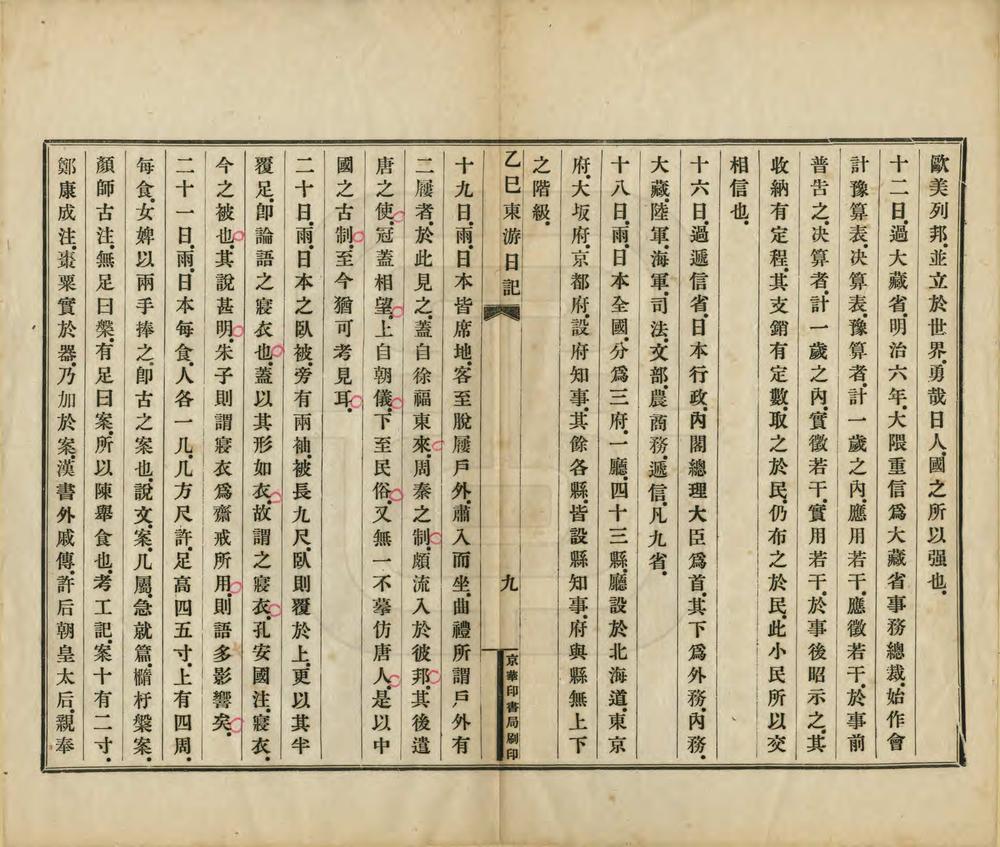 歐美列邦.並立於世界.勇哉日人.國之所以强也.
十二日.過大藏省.明治六年.大隈重信爲大藏省事務總裁.始作會
計豫算表.决算表.豫算者.計一歲之內.應用若干.應徵若干.於事前
普告之.决算者.計一歲之內.實徵若干.實用若干.於事後昭示之.其
收納有定程.其支銷有定數.取之於民.仍布之於民.此小民所以交
相信也.
十六日.過遞信省.日本行政.內閣總理大臣爲首.其下爲外務.內務.
大藏.陸軍.海軍.司法.文部.農商務.遞信.凡九省.
十八日.雨.日本全國.分爲三府.一廳.四十三縣.廳設於北海道.東京
府.大坂府.京都府.設府知事.其餘各縣.皆設縣知事.府與縣無上下
之階級.
乙巳東游日記
九
京華印書局刷印
十九日.雨.日本皆席地.客至脫屨戶外.肅入而坐.曲禮所謂戶外有
二屨者.於此見之.蓋自徐福東來.周秦之制.頗流入於彼邦.其後遣
唐之使.冠蓋相望.上自朝儀.下至民俗.又無一不摹仿唐人.是以中
國之古制.至今猶可考見耳.
二十日.雨.日本之臥被.旁有兩袖.被長九尺.臥則覆於上.更以其半
覆足.卽論語之寢衣也.蓋以其形如衣.故謂之寢衣.孔安國注.寢衣.
今之被也.其說甚明.朱子則謂寢衣爲齋戒所用.則語多影響矣.
二十一日.雨.日本每食.人各一几.几方尺許.足高四五寸.上有四周.
每食.女婢以兩手捧之.卽古之案也.說文.案.几屬.急就篇.橢杅槃案.
顏師古注.無足曰槃.有足曰案.所以陳舉食也.考工記.案十有二寸.
鄭康成注.棗栗實於器.乃加於案.漢書外戚傳.許后朝皇太后.親奉